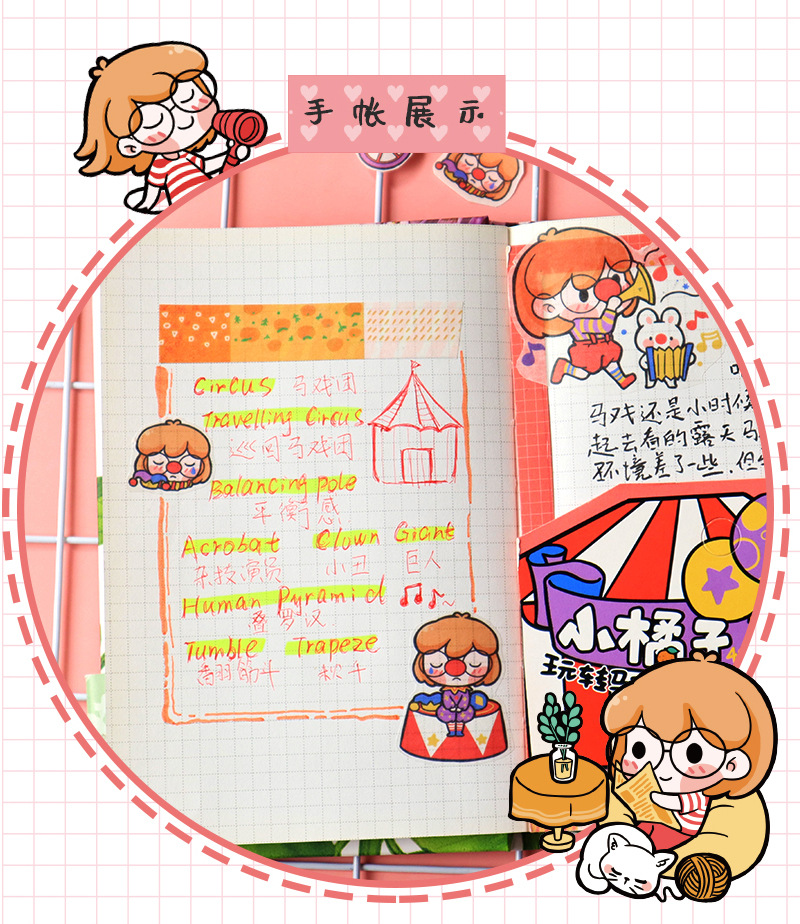 手帐展示
Circus 马戏团
Travelling Circus
巡回马戏团
Balancing pole
平衡感
Acrobat Clown Giant
杂技演员 小丑 巨人
Human Pyramid
叠罗汉
Tumble Trapeze
翻筋斗 秋千
马戏还是小时候
起去看的露天马
环境差了一些,但
小橘子
玩转马